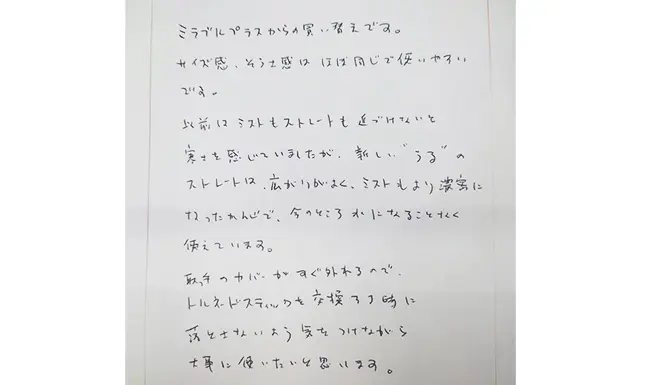 ミラブルプラスからの買い替えです。
サイズ感、そう士感は ほぼ同じで使いやすい
です。
以前は ミストもストレートも 近づけないと
寒さを感じていましたが、新しい"うる"の
ストレートは、広がりがよく、ミストもより濃密に
なったかんじで、今のところ 水になることなく
使えています。
取手のカバーがすぐ外れるので、
トルネードスティックを交換する時に
落とさないよう 気をつけながら
大事に使いたいと思います。